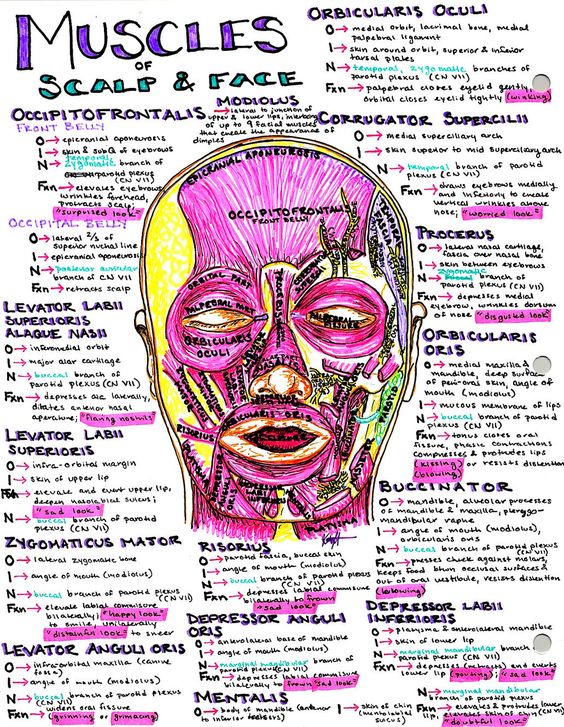 MUSCLES
OF
SCALP & FACE
OCCIPITOFRONTALIS
FRONT BELLY
O→ epicranial aponeurosis
I→ skin & subQ of eyebrows
N→ temporal,
zygomatic branch of
parotid plexus
(CN VII)
Fxn→ elevates eyebrows,
wrinkles forehead,
protracts scalp;
"surprised look"
OCCIPITAL BELLY
O→ lateral 2/3 of
superior nuchal line
I→ epicranial aponeurosis
N→ posterior auricular
branch of CN VII
Fxn→ retracts scalp
LEVATOR LABII
SUPERIORIS
ALAQUE NASII
O→ inferomedial orbit
I→ major alar cartilage
N→ buccal branch of
parotid plexus (CN VII)
Fxn→ depresses ala laterally,
dilates anterior nasal
aperature; "flaring nostrils"
LEVATOR LABII
SUPERIORIS
O→ infra-orbital margin
I→ skin of upper lip
Fxn→ elevate and evert upper lip;
deepen nasolabial sulcus;
"sad look"
N→ buccal branch of parotid
plexus (CN VII)
ZYGOMATICUS MAJOR
O→ lateral zygomatic bone
I→ angle of mouth (modiolus)
N→ buccal branch of parotid plexus
(CN VII)
Fxn→ elevate labial commisure
bilaterally; "happy look"
to smile, unilaterally
"distainful look" to sneer
LEVATOR ANGULI ORIS
O→ infra-orbital maxilla (canine
fossa)
I→ angle of mouth (modiolus)
N→ buccal branch of parotid
plexus (CN VII)
Fxn→ widens oral fissure
(grinning or grimacing)
MODIOLUS
→ lateral to junction of
upper & lower lips, interlacing
of up to 9 facial muscles
that create the appearance of
dimples
EPICRANIAL APONEUROSIS
OCCIPITOFRONTALIS
FRONT BELLY
TEMPORAL
FASCIA
ORBITAL PART
PALPEBRAL PART
ORBICULARIS
OCULI
PROCERUS
PALPEBRAL
FISSURE
ORBICULARIS ORIS
RISORIUS
PLATYSMA
MASSETER
PLATYSMA
RISORIUS
O→ parotid fascia, buccal skin
I→ angle of mouth (modiolus)
N→ buccal branch of parotid plexus
(CN VII)
Fxn→ depresses labial commisure
bilaterally to frown
"sad look"
DEPRESSOR ANGULI
ORIS
O→ anterolateral base of mandible
I→ angle of mouth (modiolus)
N→ marginal mandibular branch of
parotid plexus (CN VII)
Fxn→ depresses labial commisure
bilaterally to frown "sad look"
MENTALIS
O→ body of mandible (anterior
to inferior incisors)
I→ skin of chin
(mentolabial
sulcus)
ORBICULARIS OCULI
O→ medial orbit, lacrimal bone, medial
palpebral ligament
I→ skin around orbit, superior & inferior
tarsal plates
N→ temporal, zygomatic branches of
parotid plexus (CN VII)
Fxn→ palpebral closes eyelid gently,
orbital closes eyelid tightly (winking)
CORRUGATOR SUPERCILII
O→ medial superciliary arch
I→ skin superior to mid superciliary arch
N→ temporal branch of parotid
plexus (CN VII)
Fxn→ draws eyebrows medially
and inferiorly to create
vertical wrinkles above
nose; "worried look"
PROCERUS
O→ lateral nasal cartilage,
fascia over nasal bone
I→ skin between eyebrows
zygomatic
N→ branch of
parotid plexus (CN VII)
Fxn→ depresses medial
eyebrow, wrinkles dorsum
of nose "disgusted look"
ORBICULARIS
ORIS
O→ medial maxilla &
mandible, deep surface
of peri-oral skin, angle of
mouth (modiolus)
I→ mucous membrane of lips
N→ buccal branch of parotid
plexus (CN VII)
Fxn→ tonus closes oral
fissure, phasic contractions
compresses & protrudes lips
(kissing) or resists distention
(blowing)
BUCCINATOR
O→ mandible, alveolar processes
of mandible & maxilla, pterygo-
mandibular raphe
I→ angle of mouth (modiolus),
orbicularis oris
N→ buccal branch of parotid plexus
(CN VII)
Fxn→ presses cheek against molars,
keeps food btwn occlusal surfaces &
out of oral vestibule, resists distention
(blowing)
DEPRESSOR LABII
INFERIORIS
O→ platysma & anterolateral mandible
I→ skin of lower lip
N→ marginal mandibular branch of
parotid plexus (CN VII)
Fxn→ depresses (retracts) and everts
lower lip (pouting); "sad look"
N→ marginal mandibular
branch of parotid plexus
(CN VII)
Fxn→ elevates & protrudes lower
elevates skin of chin
"doubtful look"